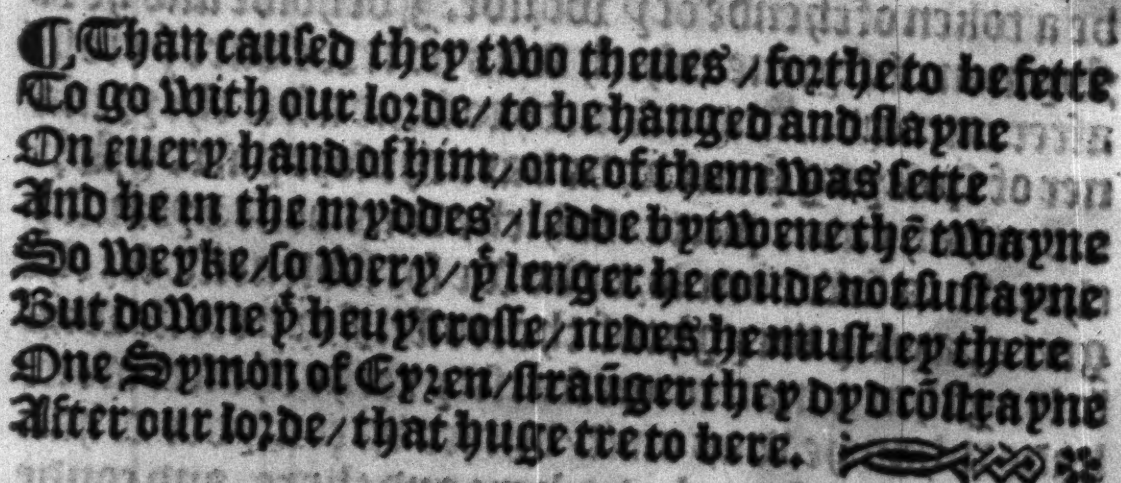 ¶ Than cauſed they two theues / forthe to be fette
To go with our lorde / to be hanged and ſlayne
On euery hand of him / one of them was ſette
And he in the myddes / ledde bytwene thẽ twayne
So weyke / ſo wery / yͭ lenger he coude not ſuſtayne
But downe yͤ heuy croſſe / nedes he muſt ley there
One Symon of Eyren / ſtraũger they dyd cõſtrayne
After our lorde / that huge tre to bere.